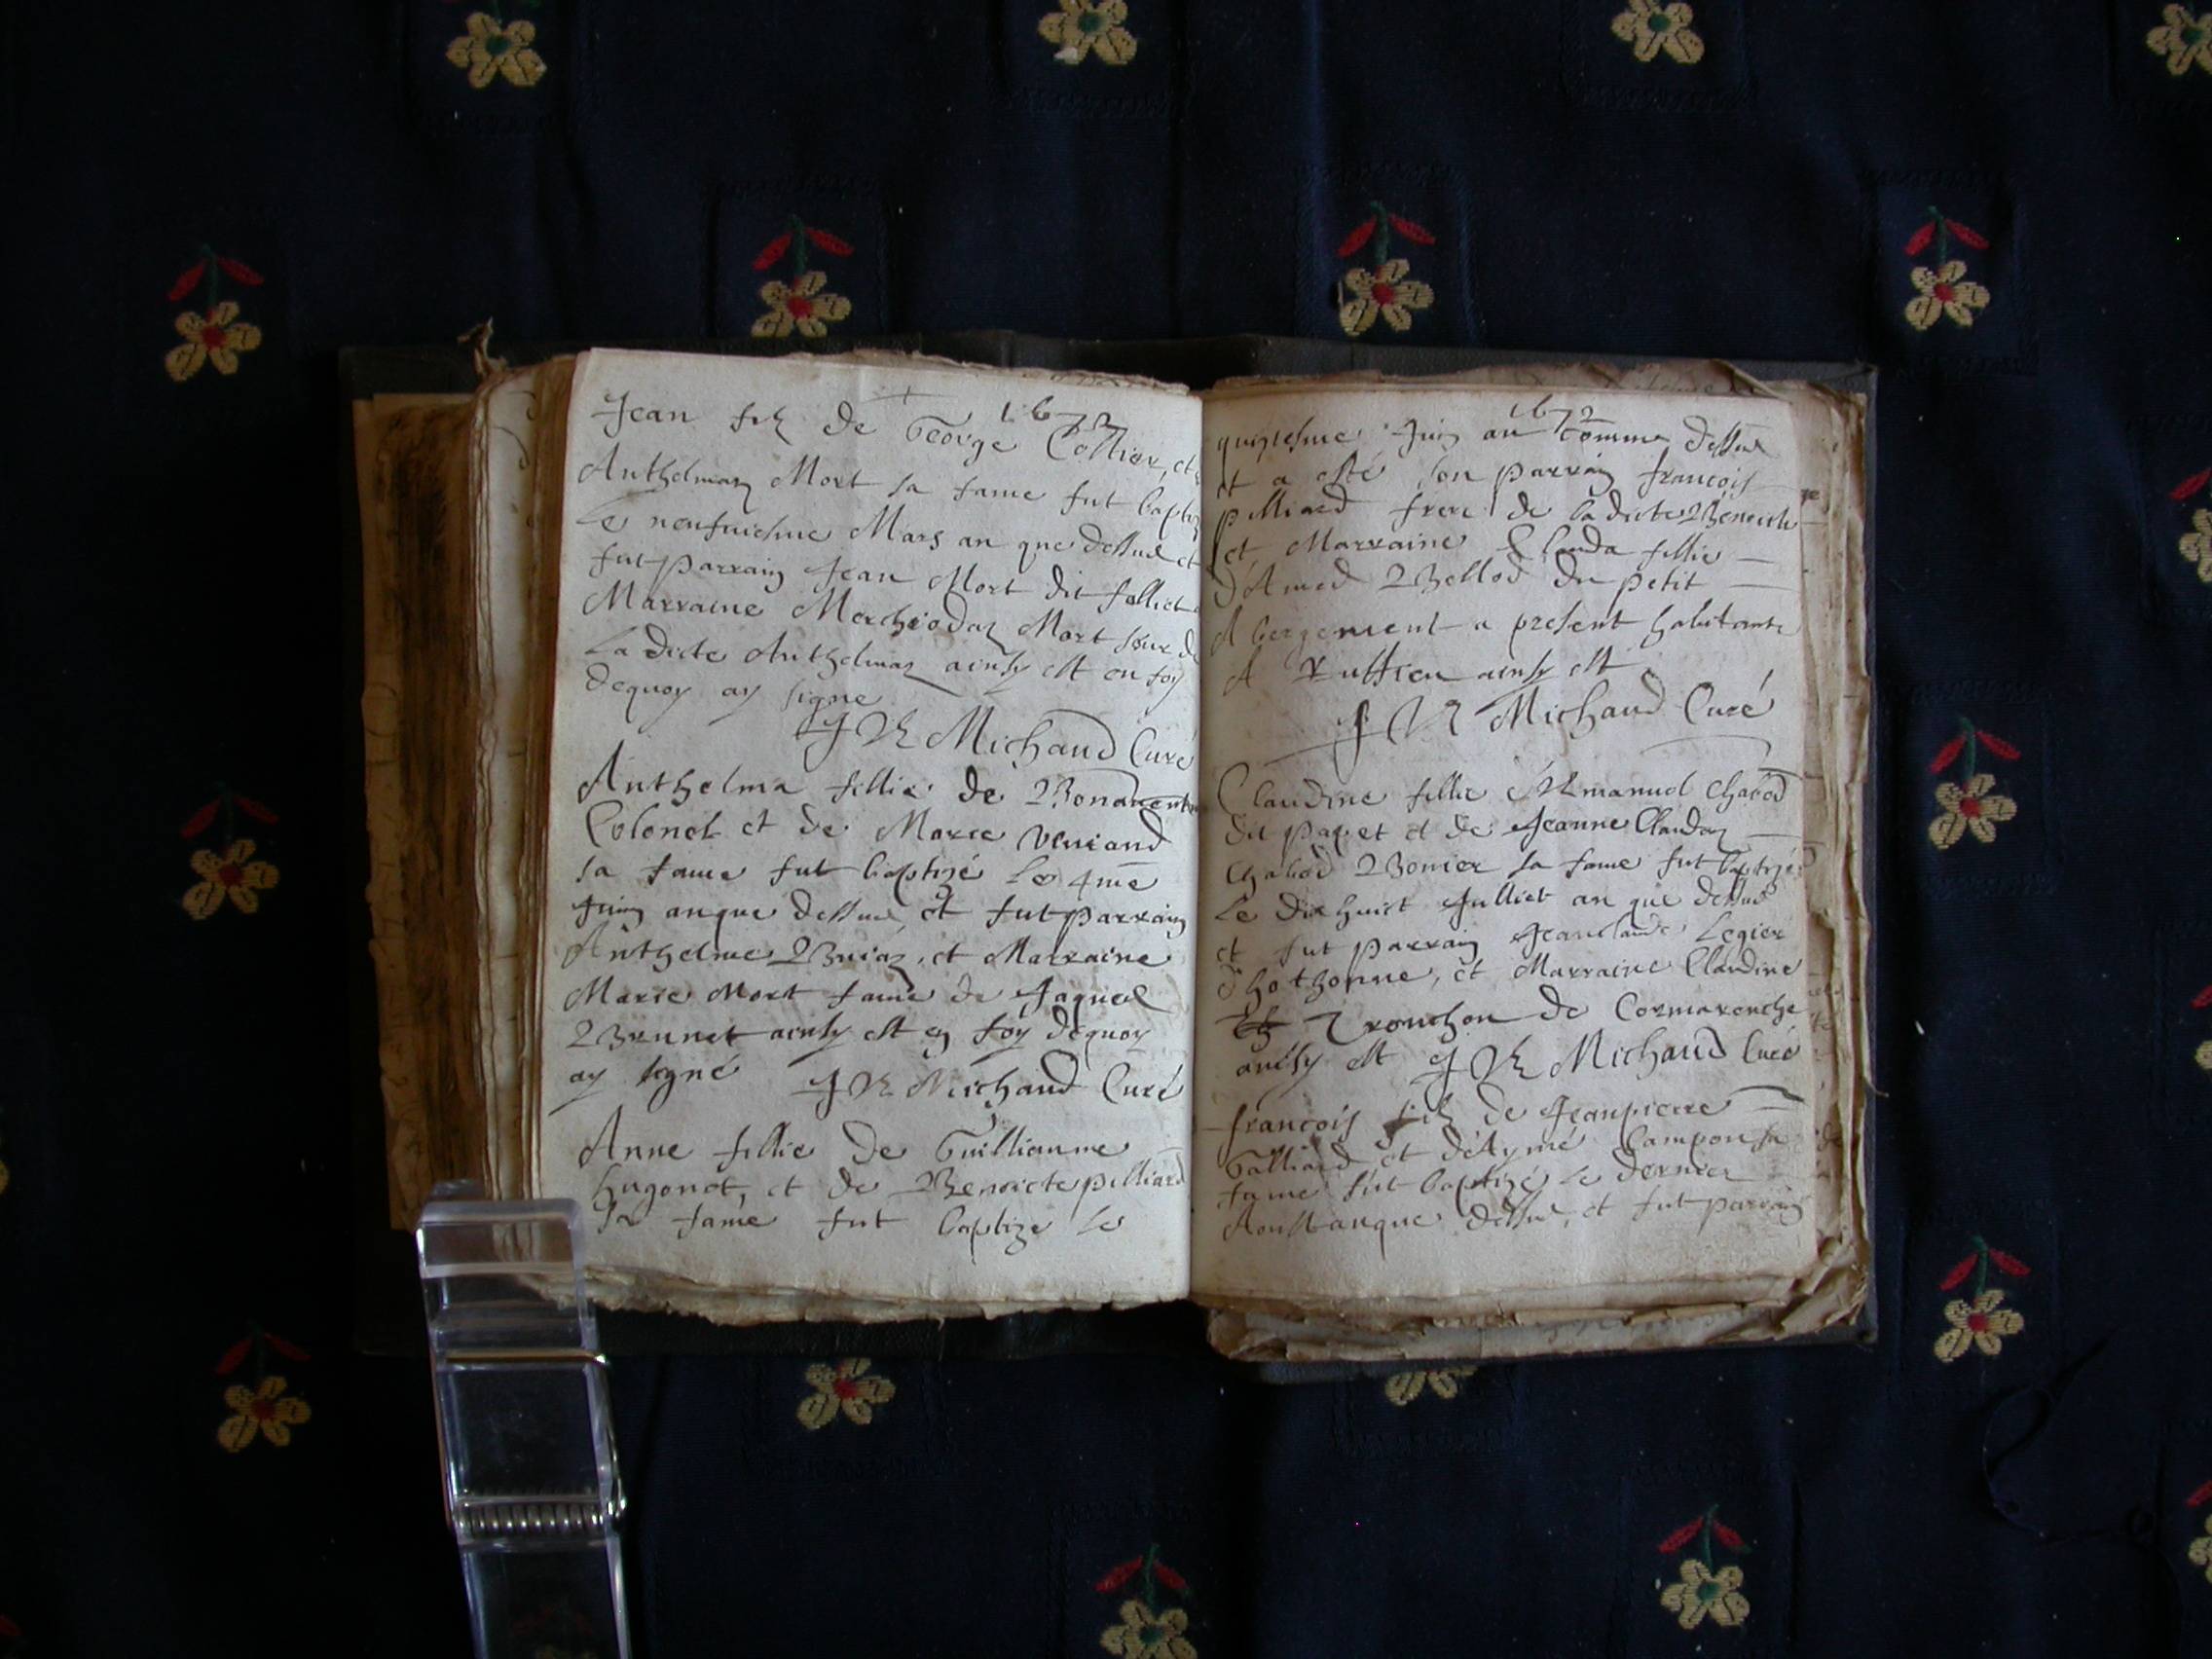 1672
Jean filz de George Collier, et
Anthelmaz Mort sa fame fut baptiz
Le neufuiesme Mars an que dessus et
fut parrain Jean Mort dit folliet
Marraine Merchiodaz Mort seur de
La dicte Anthelmaz ainsy est en foy
dequoy ay signe
J R Michaud Curé
Anthelma fillie de Bonauentu
Colonel et de Marie
sa fame fut baptizé le 4me
Juin anque dessus et fut parrain
Anthelme et Marraine
Marie Mort fame de Jaques
Brunet ainsy est en foy dequoy
ay signé J R Michaud Curé
Anne fillie de Guilliaume
hugonet, et de Benoicte pilliard
Sa fame fut baptize le
1672
quiziesme Juin an comme dessus
et a esté son parrain francois
pilliard frere de la dicte Benoicte
et Marraine Clauda fillie
d'Amed Bellod du petit
Abergement a present habitante
A Ruffieu ainsy est
J R Michaud Curé
Claudine fillie Emanuel Chabod
dit paquet et de Jeanne Claudaz
Chabod Bonier sa fame fut baptizé
Le dixhuict Julliet an que dessus
et fut parrain Jeanclaude Legier
d'hothonne, et Marraine Claudine
Tronchon de Cormaranche
ainsy est J R Michaud Curé
francois filz de Jeanpierre
Galliard et d'Aymé Campon sa
fame fut baptizé le dernier
Aoust anque dessus, et fut parrain